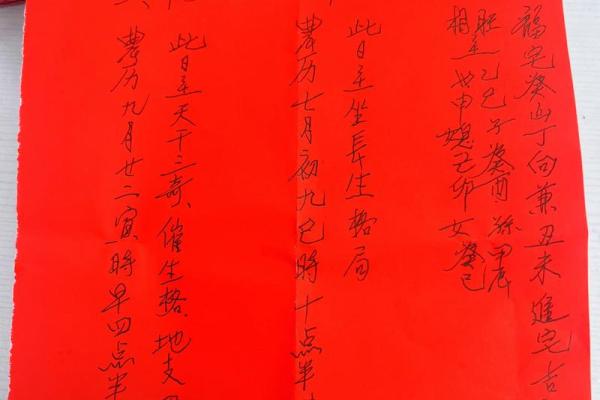 福宅癸山丁向兼丑未進宅吉
乙巳子癸酉孫甲辰
相主女申媳己卯女癸巳
农历七月初九巳時十点半
此日主坐長生格局
农历九月廿二寅時早四点半
此日主天干三奇、催生格、地支